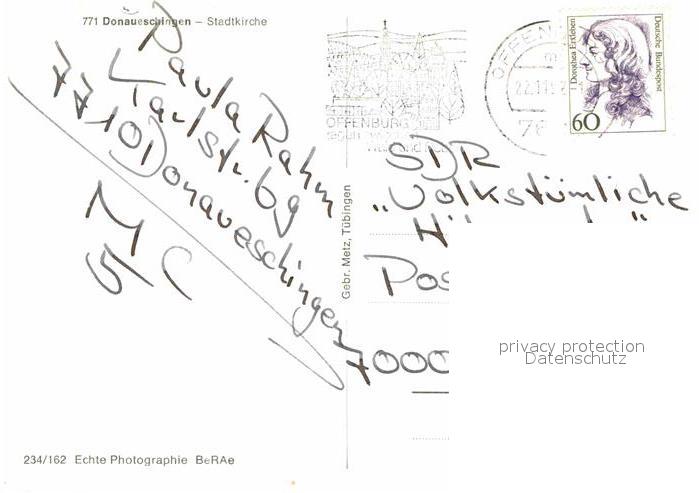 771 Donaueschingen – Stadtkirche
Paula Rahm
Karlstr. 69
7710 Donaueschingen
M
5 C
234/162 Echte Photographie BeRAe
Gebr. Metz, Tübingen
OFFENBURG
OFFEN
22.11
76
Dorothea Erxleben
Deutsche Bundespost
60
SDR
„Volkstümliche
H"
Pos
7000
privacy protection
Datenschutz